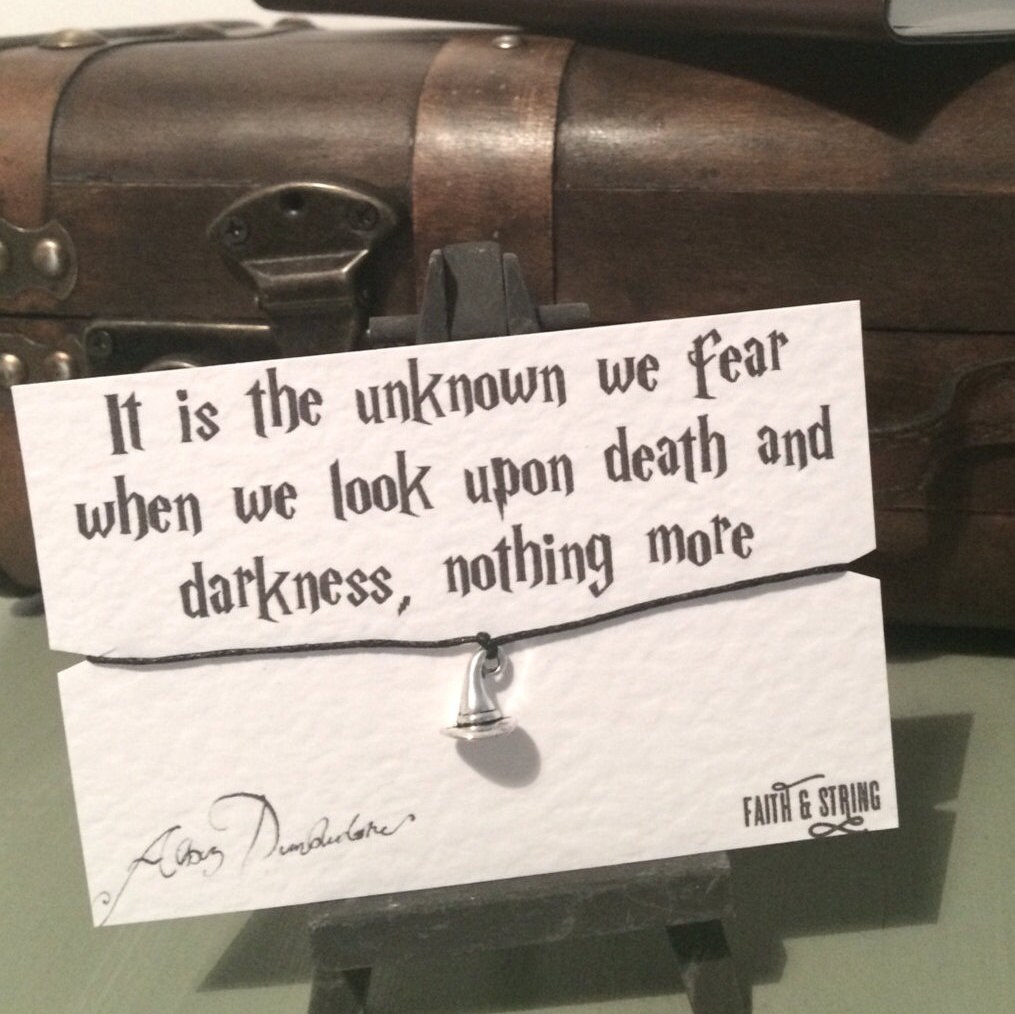 It is the unknown we fear
when we look upon death and
darkness, nothing more
Albus Dumbledore
FAITH & STRING